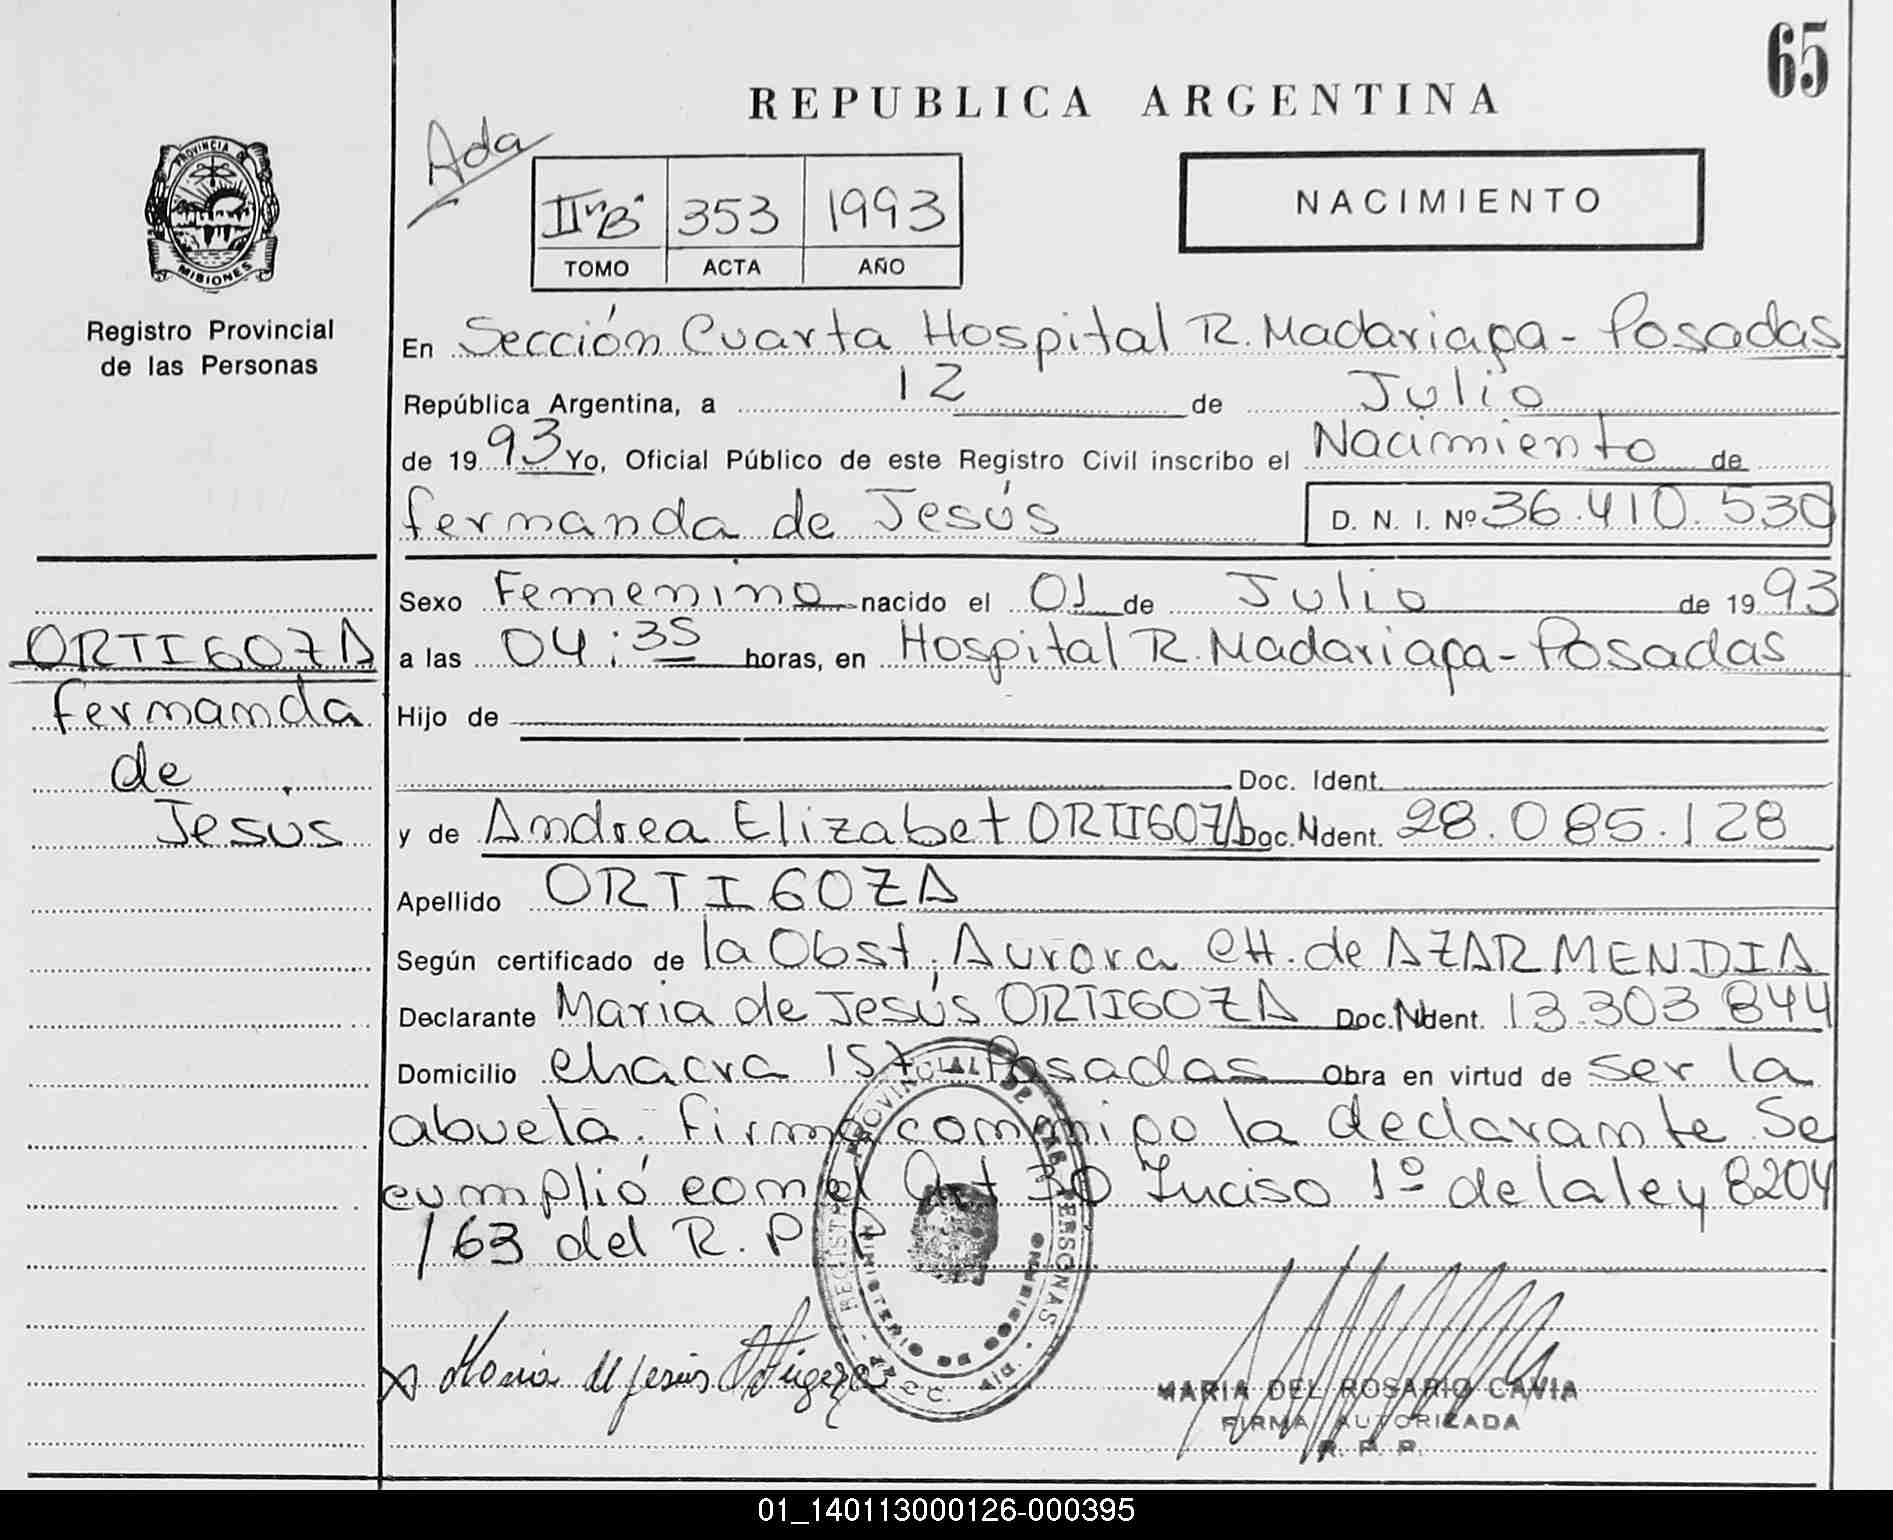 65
REPUBLICA ARGENTINA
Ada
IIº"B" 353 1993
TOMO ACTA AÑO
NACIMIENTO
PROVINCIA DE
MISIONES
Registro Provincial
de las Personas
En Sección Cuarta Hospital R. Madariaga - Posadas
República Argentina, a 12 de Julio
de 1993 Yo, Oficial Público de este Registro Civil inscribo el Nacimiento de
fernanda de Jesús D. N. I. Nº 36.410.530
Sexo Femenino nacido el 01 de Julio de 1993
ORTIGOZA
fernanda
de
Jesús
a las 04:35 horas, en Hospital R. Madariaga - Posadas
Hijo de
Doc. Ident.
y de Andrea Elizabet ORTIGOZA Doc. Ndent. 28.085.128
Apellido ORTIGOZA
Según certificado de la Obst. Aurora CH. de AZARMENDIA
Declarante Maria de Jesús ORTIGOZA Doc. Ndent. 13.303 844
Domicilio chacra 157 Posadas Obra en virtud de ser la
abuela. firma conmigo la declarante. Se
cumplió con el Art 30 Inciso 1º de la ley 8204
/63 del R. P.
REGISTRO PROVINCIAL DE LAS PERSONAS
MINISTERIO DE GOBIERNO
x Maria d Jesús Ortigoza
MARIA DEL ROSARIO CAVIA
FIRMA AUTORIZADA
R. P. P.
01_140113000126-000395